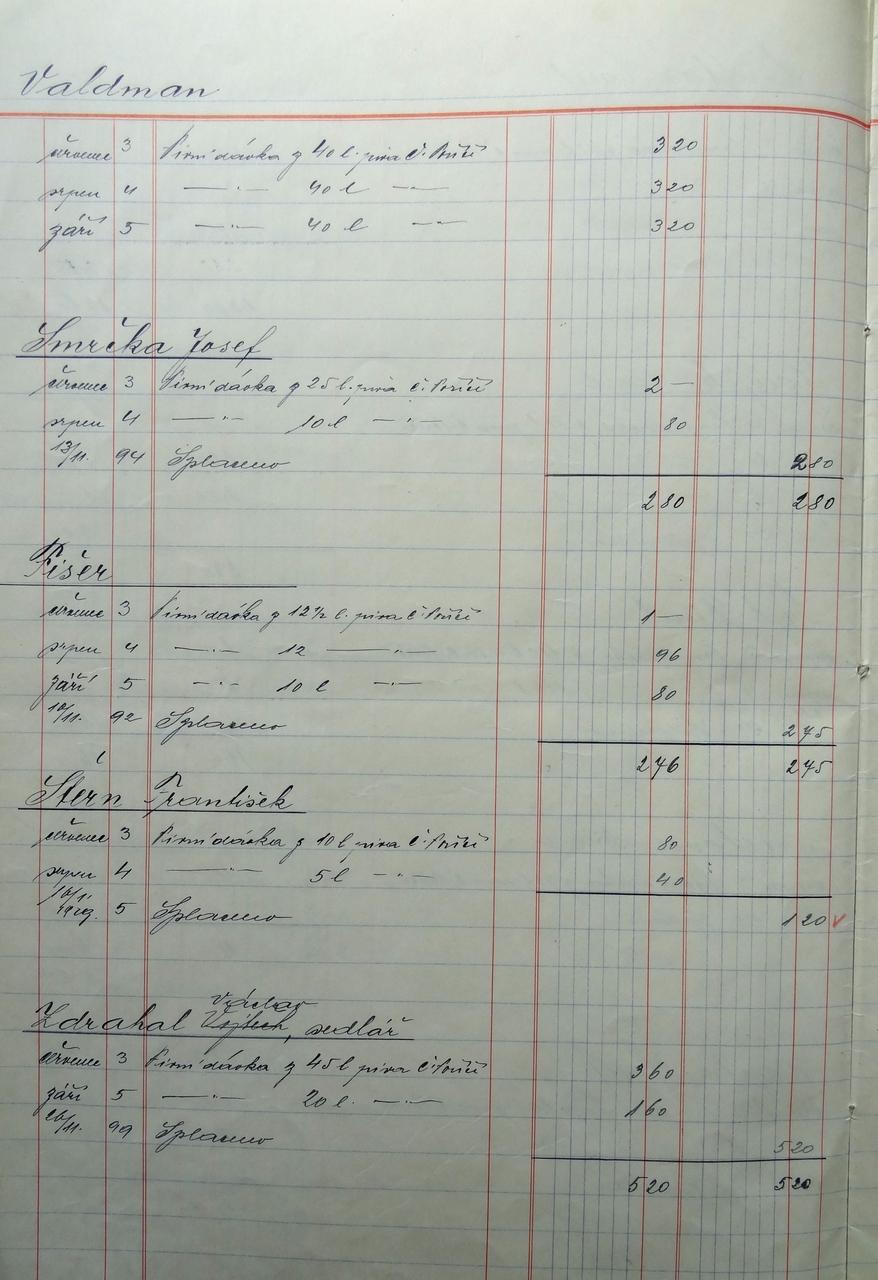 Valdman
červenec 3 Pivní dávka z 40 l. piva č. Poříčí 3 20
srpen 4 — " — 40 l — " — 3 20
září 5 — " — 40 l — " — 3 20
Smrčka Josef
červenec 3 Pivní dávka z 25 l. piva č. Poříčí 2 —
srpen 4 — " — 10 l — " — 80
13/11. 94 Splaceno 2 80
2 80 2 80
Fišer
červenec 3 Pivní dávka z 12 1/2 l. piva č. Poříčí 1 —
srpen 4 — " — 12 — " — 96
září 5 — " — 10 l — " — 80
10/11. 92 Splaceno 2 75
2 76 2 75
Štérn František
červenec 3 Pivní dávka z 10 l. piva č. Poříčí 80
srpen 4 — " — 5 l — " — 40
5 Splaceno 1 20 V
Václav
Zdrahal Vojtěch, sedlář
červenec 3 Pivní dávka z 45 l piva č. Poříčí 3 60
září 5 — " — 20 l. — " — 1 60
26/11. 99 Splaceno 5 20
5 20 5 20